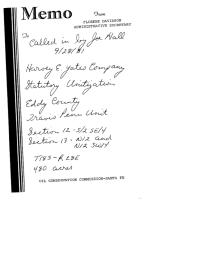 Memo From
FLORENE DAVIDSON
ADMINISTRATIVE SECRETARY
To Called in by Joe Hall
9/28/81
Harvey E Yates Company
Statutory Unitization
Eddy County
Travis Penn Unit
Section 12 - S/2 SE/4
Section 13 - N/2 and
N/2 SW/4
T18S - R 28E
480 acres
OIL CONSERVATION COMMISSION-SANTA FE